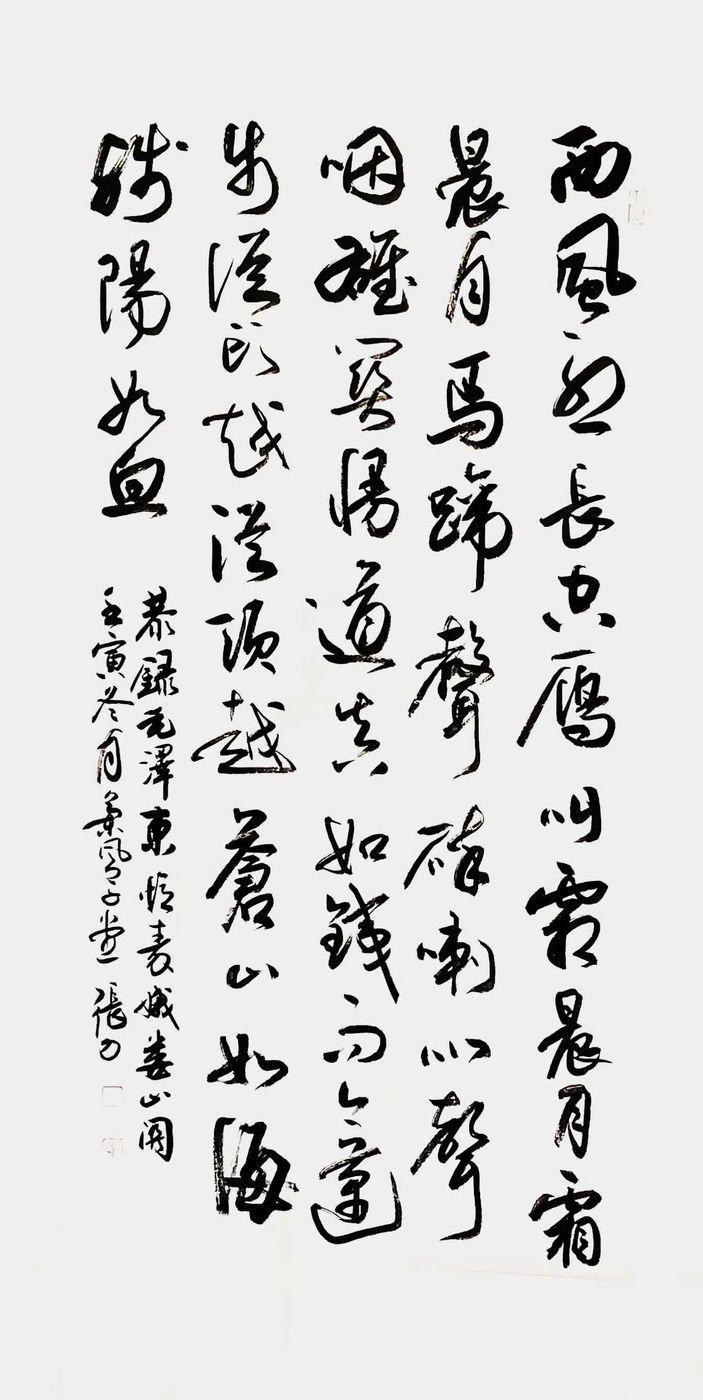 西風烈長空鴈叫霜晨月霜
晨月馬蹄聲碎喇叭聲
咽雄關漫道真如鐵而今邁
步從頭越從頭越蒼山如海
殘陽如血
恭録毛澤東憶秦娥婁山關
壬寅冬月 風 堂 張力